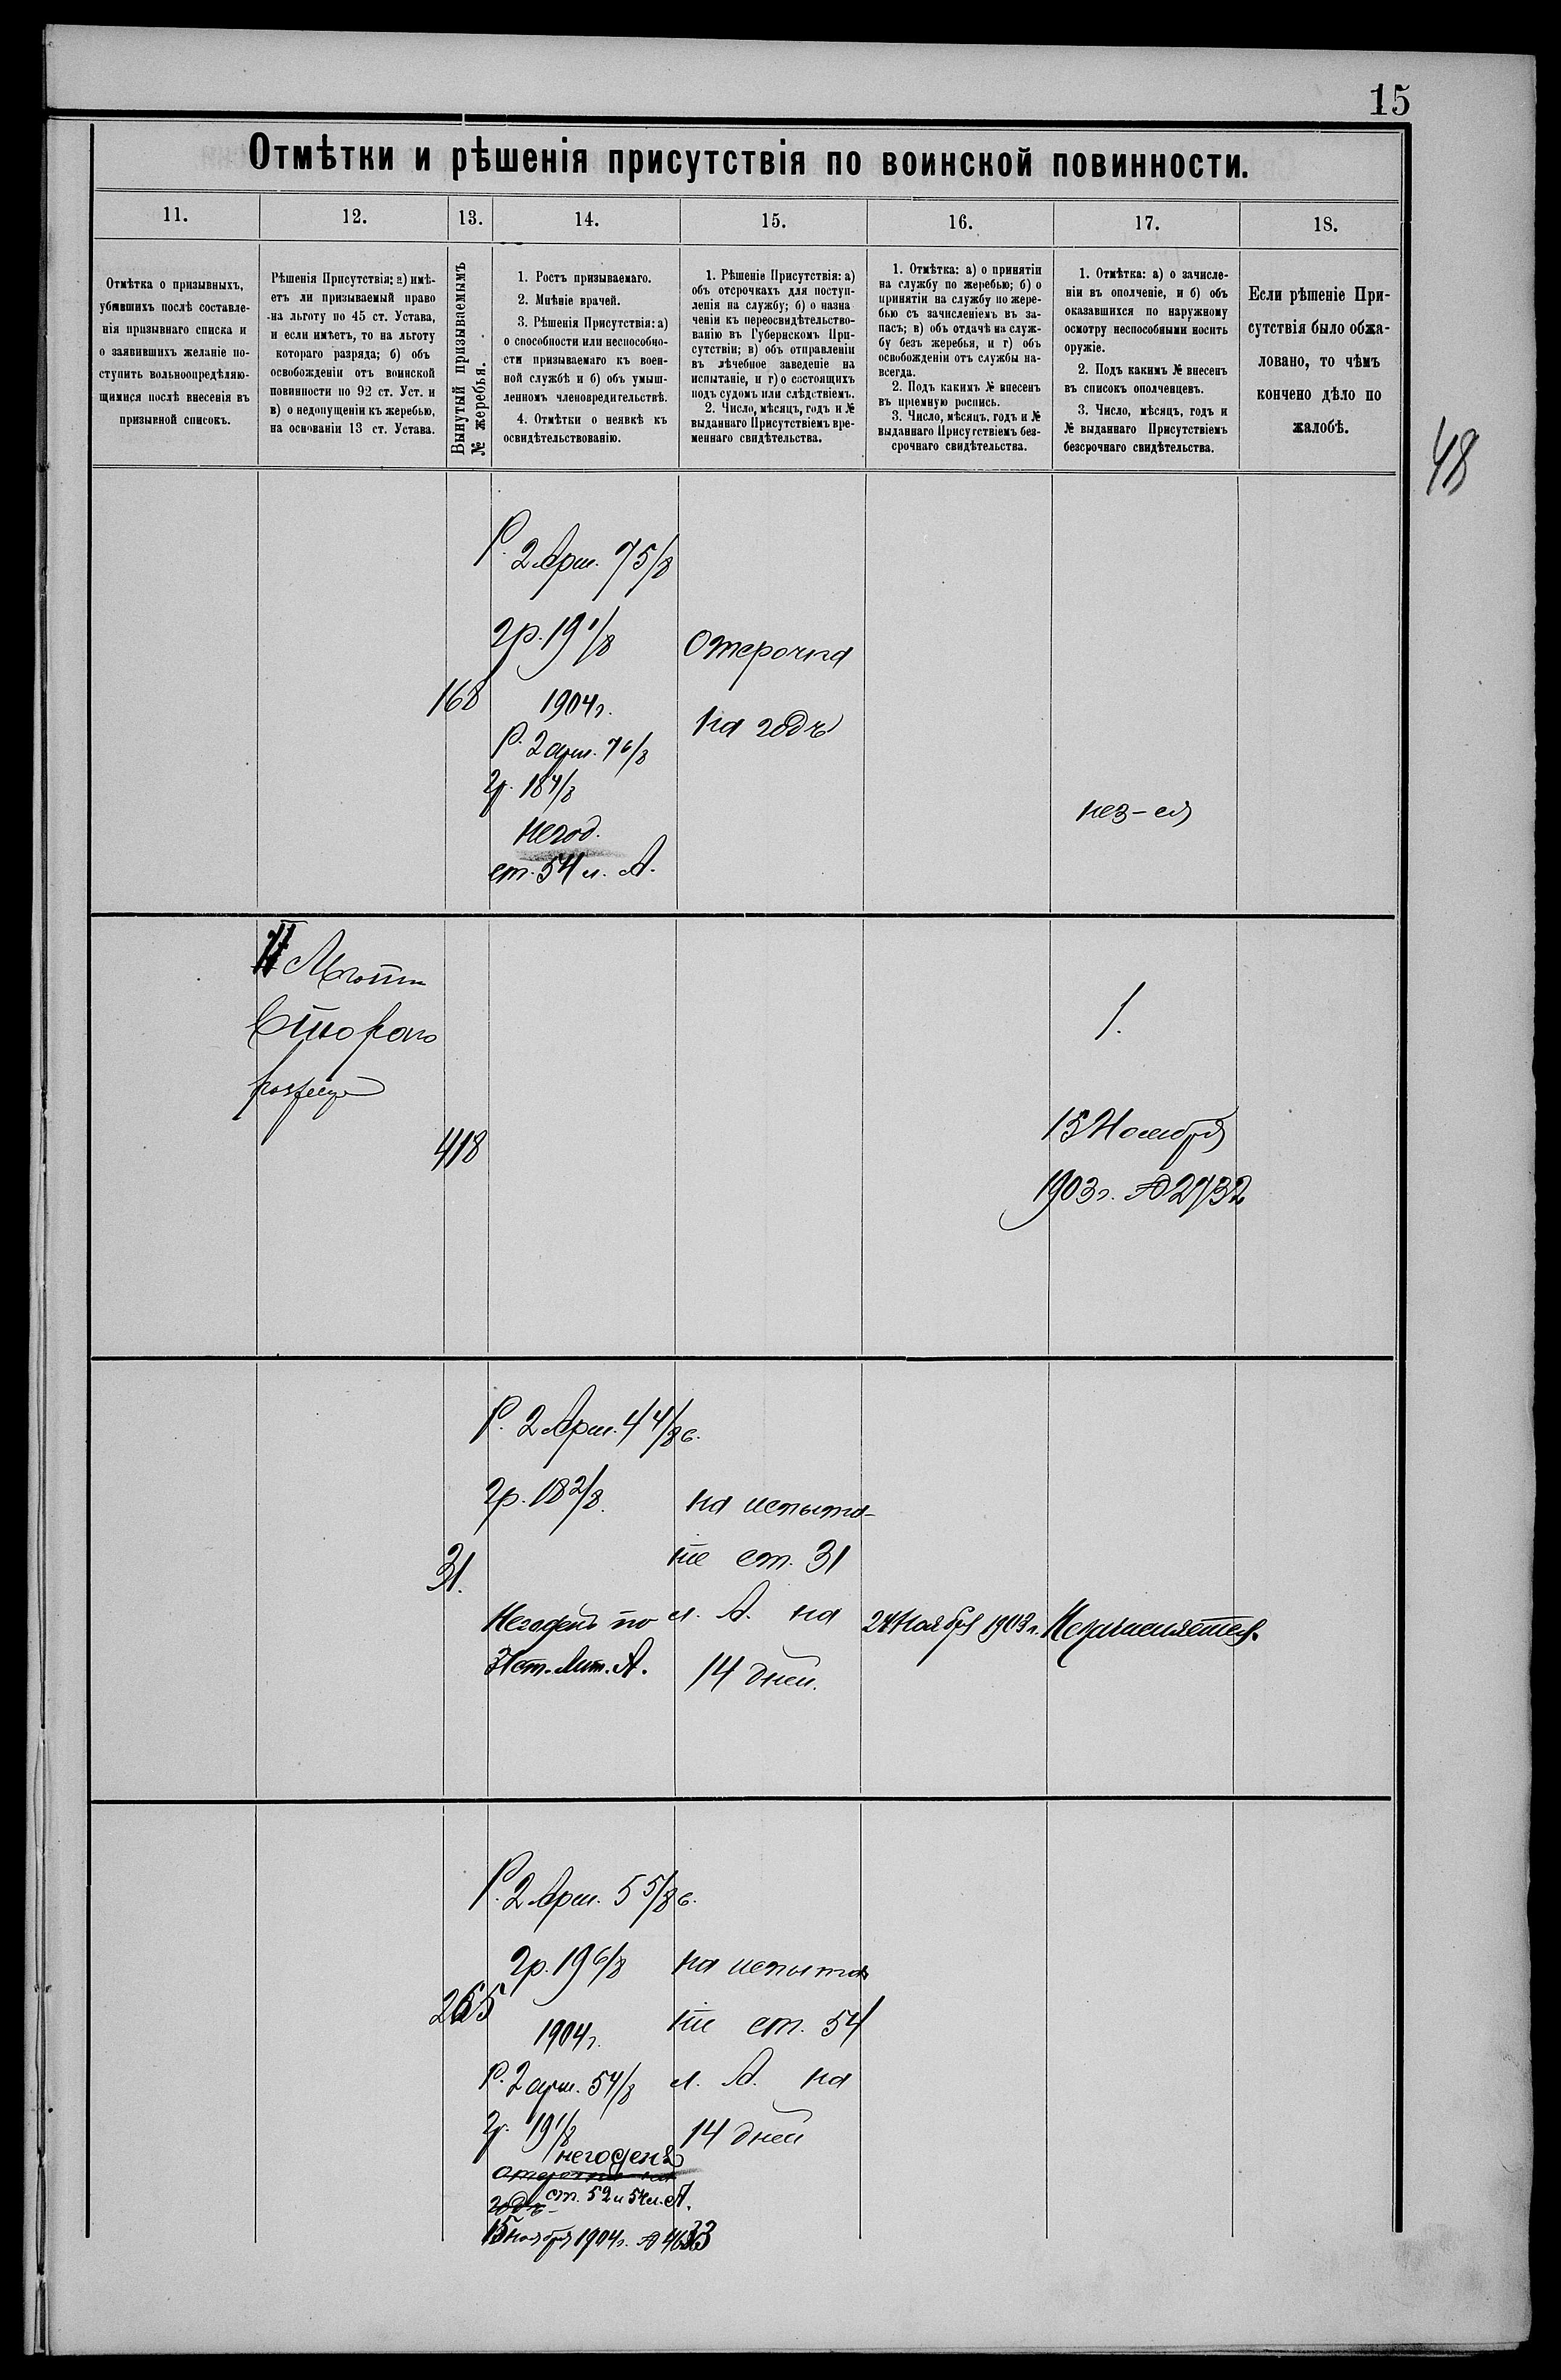 15
Отмѣтки и рѣшенія присутствія по воинской повинности.
11.
12.
13.
14.
15.
16.
17.
18.
Отмѣтка о призывныхъ,
убывшихъ послѣ составле-
нія призывнаго списка и
о заявившихъ желаніе по-
ступить вольноопредѣляю-
щимися послѣ внесенія въ
призывной списокъ.
Рѣшенія Присутствія: а) имѣ-
етъ ли призываемый право
на льготу по 45 ст. Устава,
и если имѣетъ, то на льготу
котораго разряда; б) объ
освобожденіи отъ воинской
повинности по 92 ст. Уст. и
в) о недопущеніи къ жеребью,
на основаніи 13 ст. Устава.
Вынутый призываемымъ
№ жеребья.
1. Ростъ призываемаго.
2. Мнѣніе врачей.
3. Рѣшенія Присутствія: а)
о способности или неспособно-
сти призываемаго къ воен-
ной службѣ и б) объ умыш-
ленномъ членовредительствѣ.
4. Отмѣтки о неявкѣ къ
освидѣтельствованію.
1. Рѣшеніе Присутствія: а)
объ отсрочкахъ для поступ-
ленія на службу; б) о назна-
ченіи къ переосвидѣтельство-
ванію въ Губернскомъ При-
сутствіи; в) объ отправленіи
въ лѣчебное заведеніе на
испытаніе, и г) о состоящихъ
подъ судомъ или слѣдствіемъ.
2. Число, мѣсяцъ, годъ и №
выданнаго Присутствіемъ вре-
меннаго свидѣтельства.
1. Отмѣтка: а) о принятіи
на службу по жеребью; б) о
принятіи на службу по жере-
бью съ зачисленіемъ въ за-
пасъ; в) объ отдачѣ на служ-
бу безъ жеребья, и г) объ
освобожденіи отъ службы на-
всегда.
2. Подъ какимъ № внесенъ
въ пріемную роспись.
3. Число, мѣсяцъ, годъ и №
выданнаго Присутствіемъ без-
срочнаго свидѣтельства.
1. Отмѣтка: а) о зачисле-
ніи въ ополченіе, и б) объ
оказавшихся по наружному
осмотру неспособными носить
оружіе.
2. Подъ какимъ № внесенъ
въ списокъ ополченцевъ.
3. Число, мѣсяцъ, годъ и
№ выданнаго Присутствіемъ
безсрочнаго свидѣтельства.
Если рѣшеніе При-
сутствія было обжа-
ловано, то чѣмъ
кончено дѣло по
жалобѣ.
48
168
Р. 2 Арш. 7 5/8
гр. 19 1/8
1904 г.
Р. 2 арш. 7 6/8
гр. 18 4/8
негод.
ст. 54 л. А.
Отсрочка
на годъ
нез-ся
II Льготи
Второго
разряда
418
1.
15 Ноября
1903 г. № 2732
31.
Р. 2 Арш. 4 4/8 в.
гр. 18 2/8.
Негоденъ по
31 ст. Лит. А.
на испыта-
ніе ст. 31
л. А. на
14 дней.
24 Ноября 1903 г.
Незачисляется.
265
Р. 2 Арш. 5 5/8 в.
гр. 19 6/8
1904 г.
Р. 2 арш. 5 4/8
гр. 19 1/8
негоденъ
отсрочка на
годъ ст. 52 и 54 л. А.
15 ноября 1904 г. № 4633
на испыта
ніе ст. 54
л. А. на
14 дней